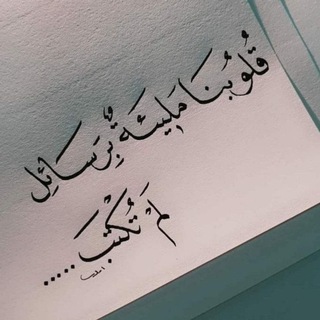 قُلُوبُنَا مَلِيئَةٌ بِرَسَائِل
لَمْ تُكْتَبَ .....